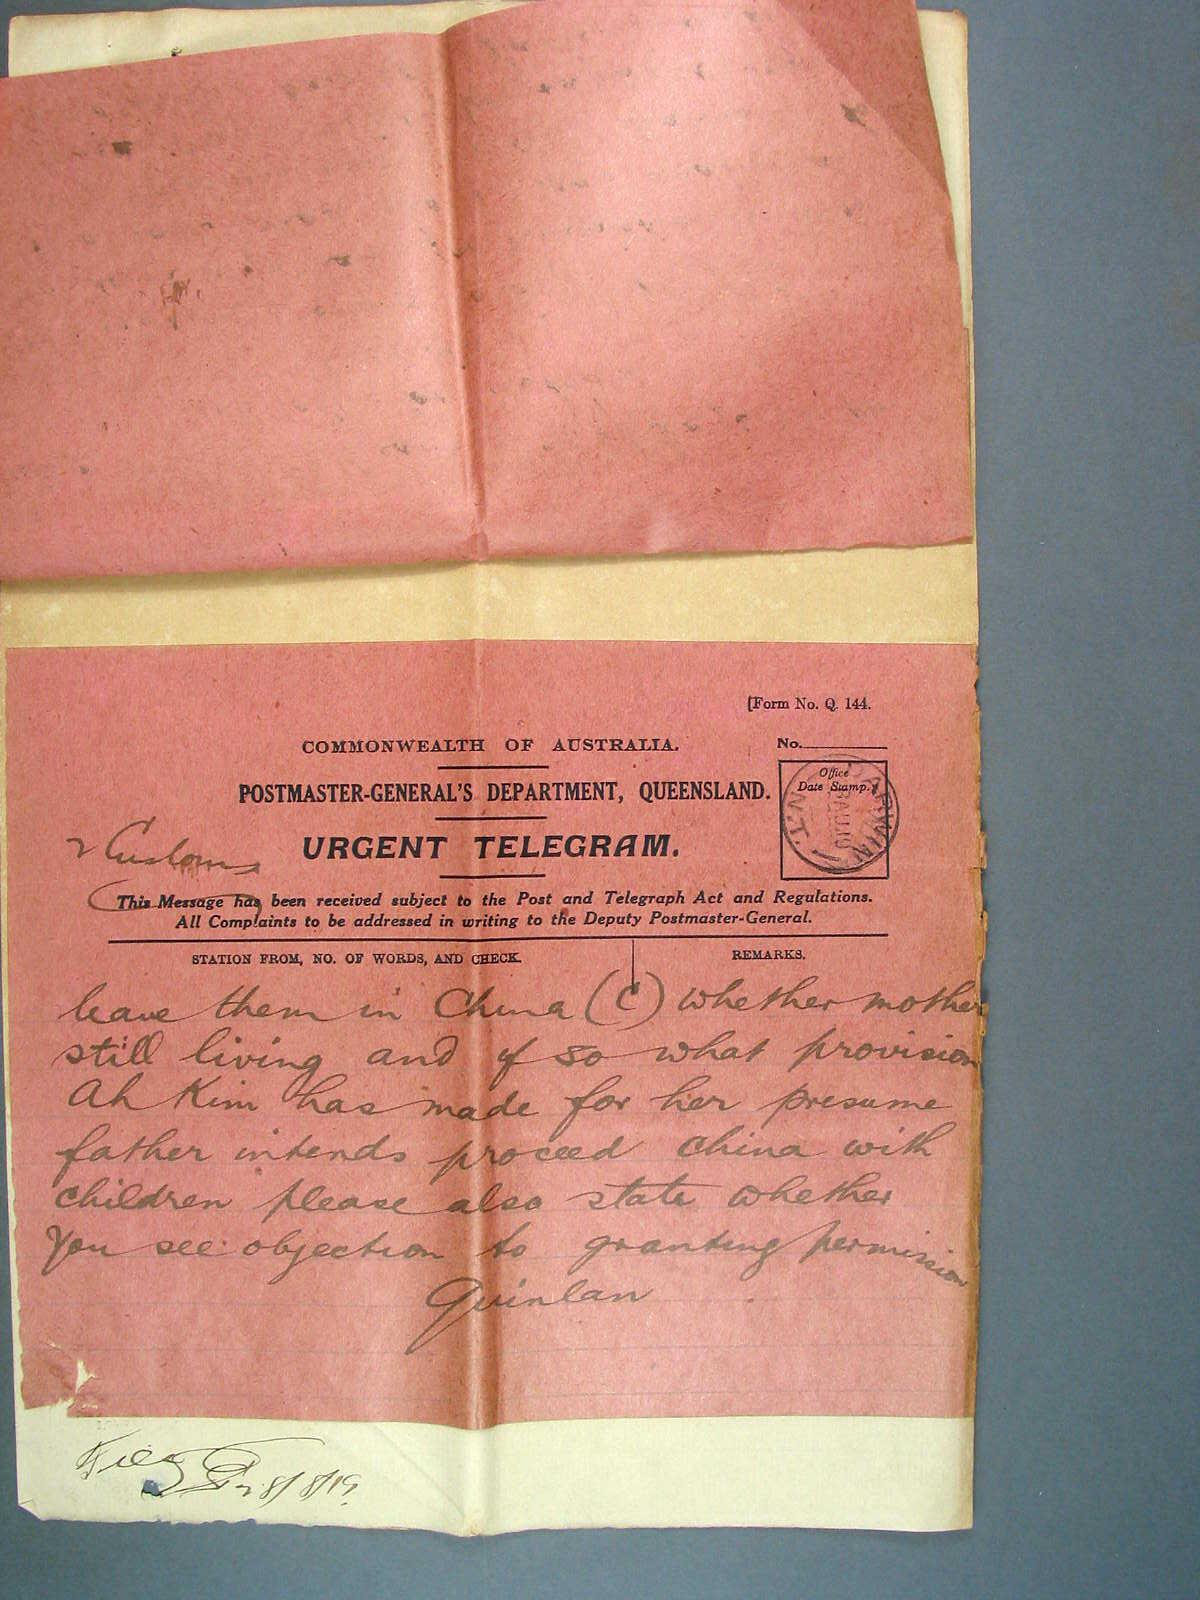 [Form No. Q. 144.
COMMONWEALTH OF AUSTRALIA.
No.
POSTMASTER-GENERAL'S DEPARTMENT, QUEENSLAND.
Office
Date Stamp.
DARWIN
N.T.
8 AU 19
2 Customs
URGENT TELEGRAM.
This Message has been received subject to the Post and Telegraph Act and Regulations.
All Complaints to be addressed in writing to the Deputy Postmaster-General.
STATION FROM, NO. OF WORDS, AND CHECK.
REMARKS.
leave them in China (C) whether mother
still living and if so what provision
Ah Kim has made for her presume
father intends proceed China with
children please also state whether
you see objection to granting permission
Quinlan
8/8/19.